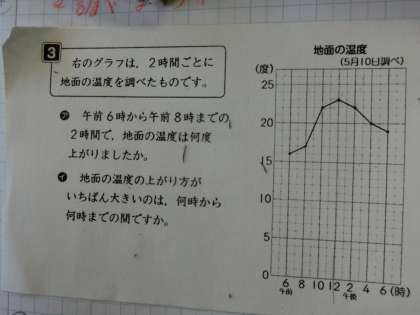 3
右のグラフは，2時間ごとに
地面の温度を調べたものです。
㋐ 午前6時から午前8時までの
2時間で，地面の温度は何度
上がりましたか。
㋑ 地面の温度の上がり方が
いちばん大きいのは，何時から
何時までの間ですか。
地面の温度
(5月10日調べ)
(度)
25
20
15
10
5
0
6 8 10 12 2 4 6 (時)
午前 午後